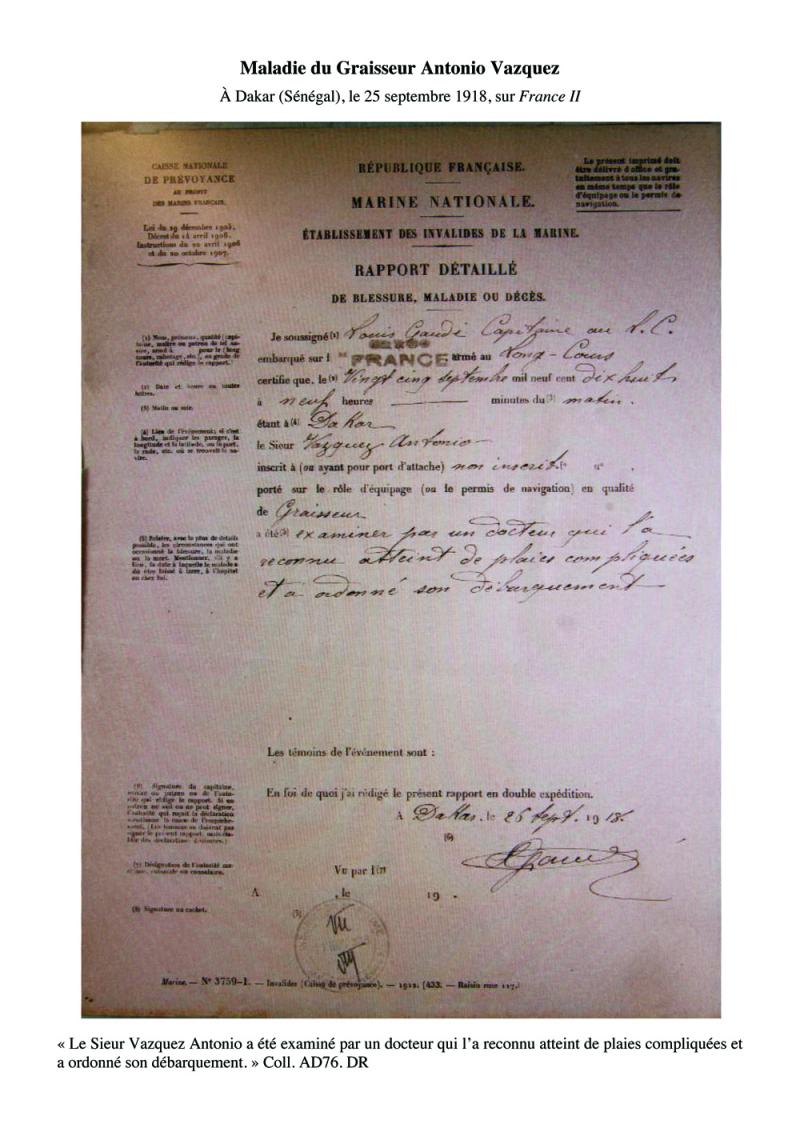 Maladie du Graisseur Antonio Vazquez
À Dakar (Sénégal), le 25 septembre 1918, sur France II
CAISSE NATIONALE
DE PRÉVOYANCE
AU PROFIT
DES MARINS FRANÇAIS.
Loi du 29 décembre 1905,
Décret du 14 avril 1906,
Instructions du 20 avril 1906
et du 20 octobre 1907.
RÉPUBLIQUE FRANÇAISE.
MARINE NATIONALE.
ÉTABLISSEMENT DES INVALIDES DE LA MARINE.
RAPPORT DÉTAILLÉ
DE BLESSURE, MALADIE OU DÉCÈS.
Le présent imprimé doit
être délivré d'office et gra-
tuitement à tous les navires
en même temps que le rôle
d'équipage ou le permis de
navigation.
(1) Nom, prénoms, qualité (capi-
taine, maître ou patron de tel na-
vire, armé à pour le (long
cours, cabotage, etc.), ou grade de
l'autorité qui rédige le rapport.)
(2) Date et heure en toutes
lettres.
(3) Matin ou soir.
(4) Lieu de l'événement; si c'est
à bord, indiquer les parages, la
longitude et la latitude, ou le port,
la rade, etc. où se trouvait le na-
vire.
(5) Relater, avec le plus de détails
possible, les circonstances qui ont
occasionné la blessure, la maladie
ou la mort. Mentionner, s'il y a
lieu, la date à laquelle le malade a
dû être laissé à terre, à l'hôpital
ou chez lui.
Je soussigné (1) Louis Gaudé Capitaine au L.C.
embarqué sur l FRANCE armé au Long-Cours
certifie que, le (2) Vingt cinq septembre mil neuf cent dix huit
à neuf heures minutes du (3) matin.
étant à (4) Dakar
le Sieur Vazquez Antonio
inscrit à (ou ayant pour port d'attache) non inscrit
porté sur le rôle d'équipage (ou le permis de navigation) en qualité
de Graisseur
a été (5) examiner par un docteur qui l'a
reconnu atteint de plaies compliquées
et a ordonné son débarquement
Les témoins de l'événement sont :
En foi de quoi j'ai rédigé le présent rapport en double expédition.
À Dakar, le 26 Sept. 1918.
(6)
(6) Signature du capitaine,
(7) Désignation de l'autorité
(8) Signature ou cachet.
Vu par l (7)
A , le 19 .
Vu
Marine. — N° 3759-1. — Invalides (Caisse de prévoyance). — 1912. (433. — Raisin rose 117.)
« Le Sieur Vazquez Antonio a été examiné par un docteur qui l'a reconnu atteint de plaies compliquées et
a ordonné son débarquement. » Coll. AD76. DR